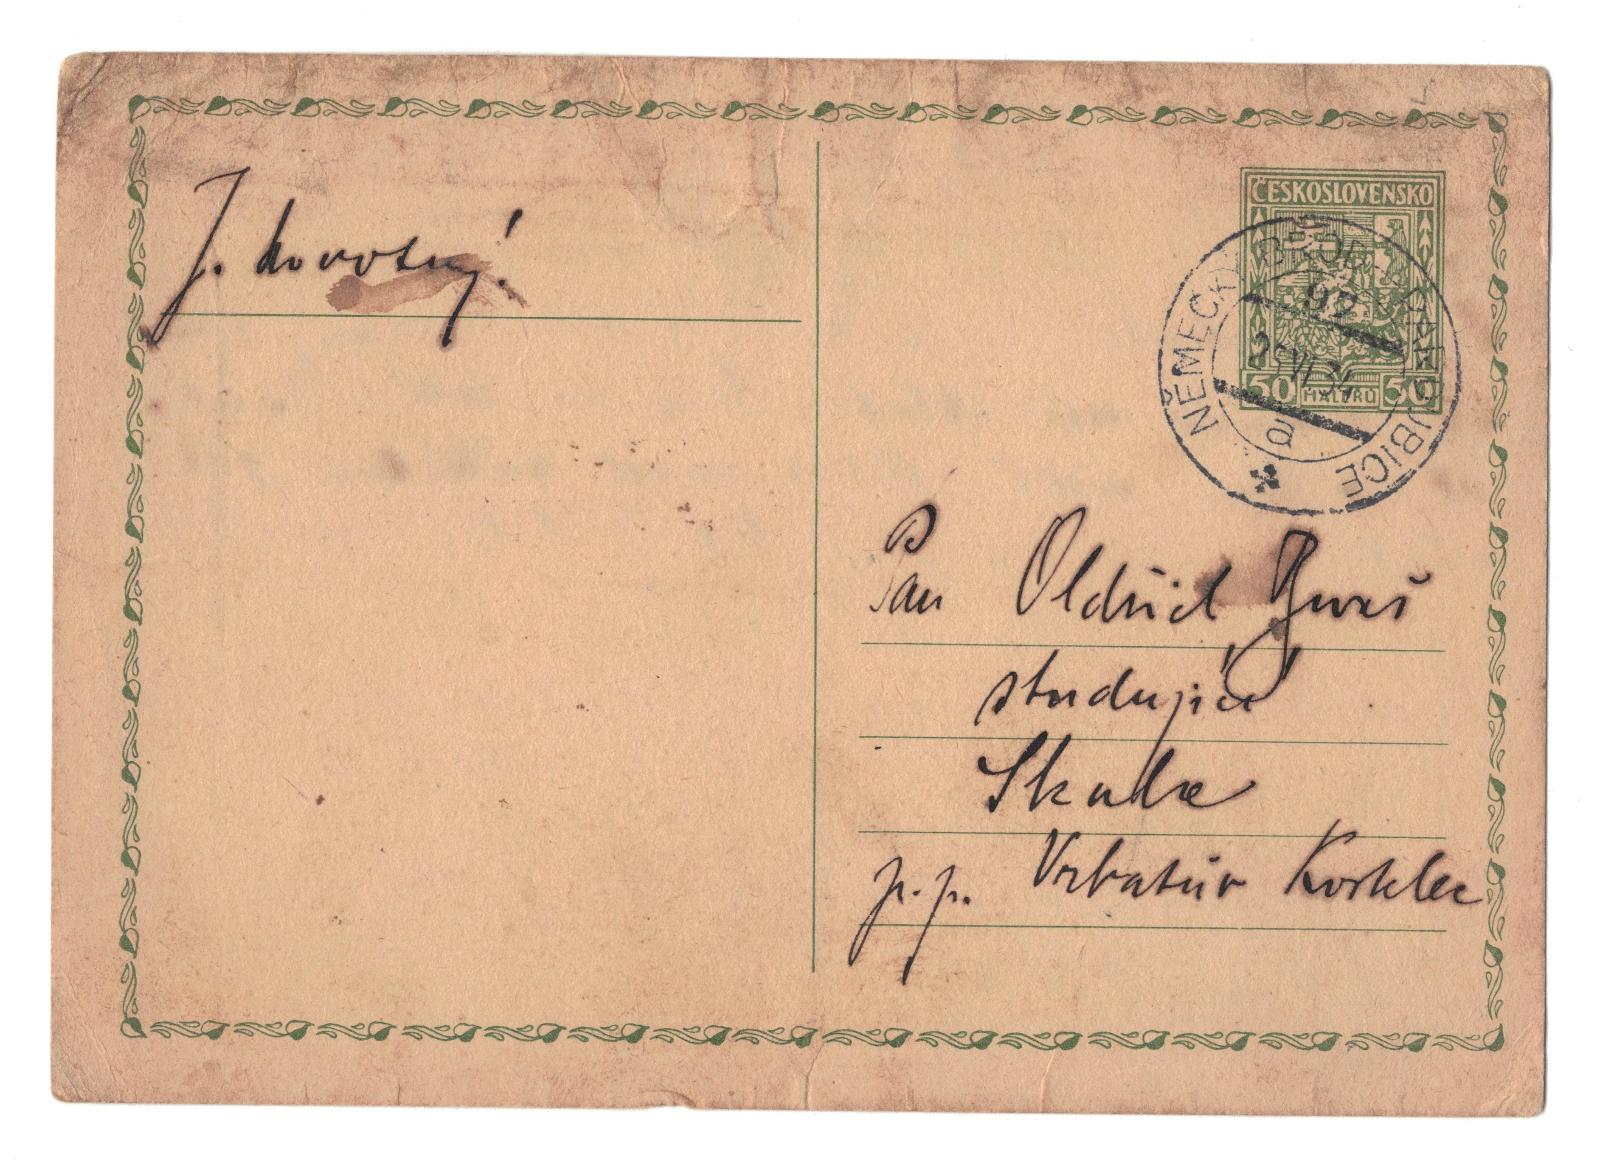 J. Novotný.
ČESKOSLOVENSKO
50 HALÉŘŮ 50
NĚMECKÝ BROD-PARDUBICE
99
25 VI. 34
a
Pan Oldřich Bureš
studující
Skála
p. p. Vrbatův Kostelec